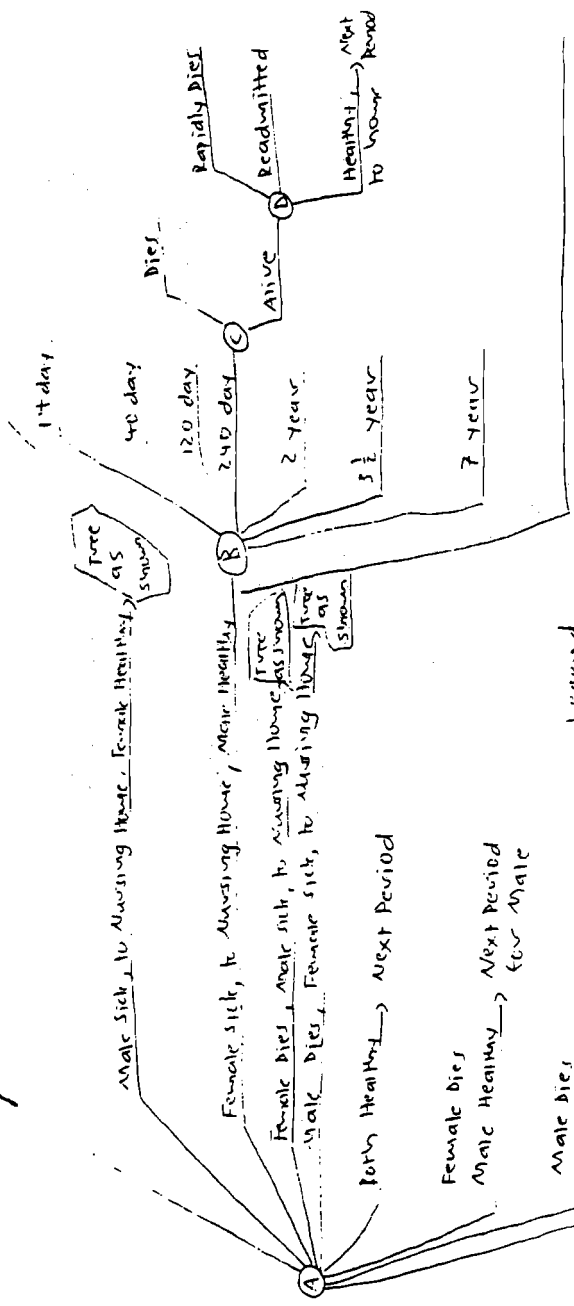 Male Sick, to Nursing Home, Female Healthy
Tree
as
shown
Female Sick, to Nursing Home, Male Healthy
Female Dies, Male Sick, to Nursing Home
Tree
as shown
Male Dies, Female Sick, to Nursing Home
Tree
as
shown
Both Healthy → Next Period
Female Dies
Male Healthy → Next Period
for Male
Male Dies
A
B
14 day
40 day
120 day
240 day
2 year
3 1/2 year
7 year
C
Dies
Alive
D
Rapidly Dies
Readmitted
Healthy → Next
Period
to home